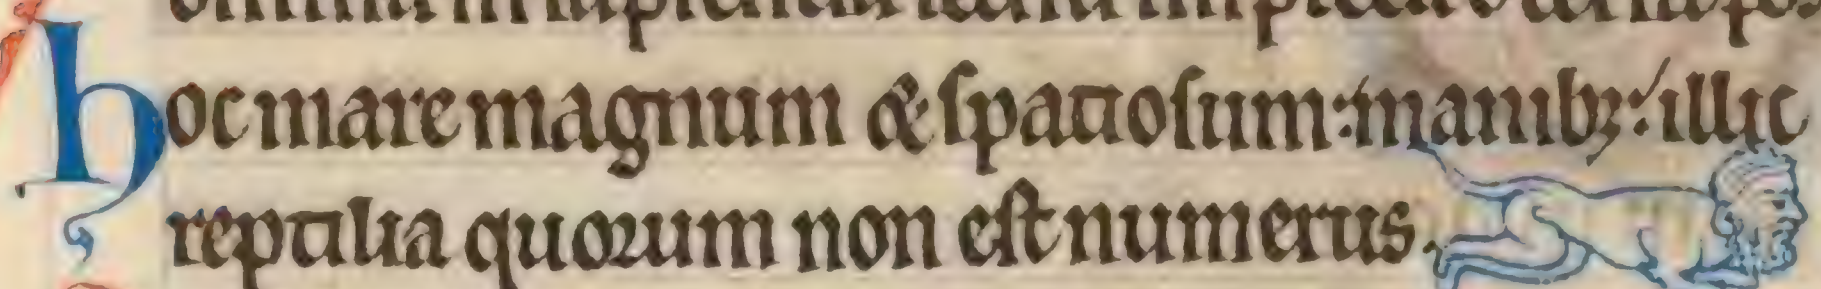 hoc mare magnum & spatiosum: manibꝫ: illic
reptilia quorum non est numerus.